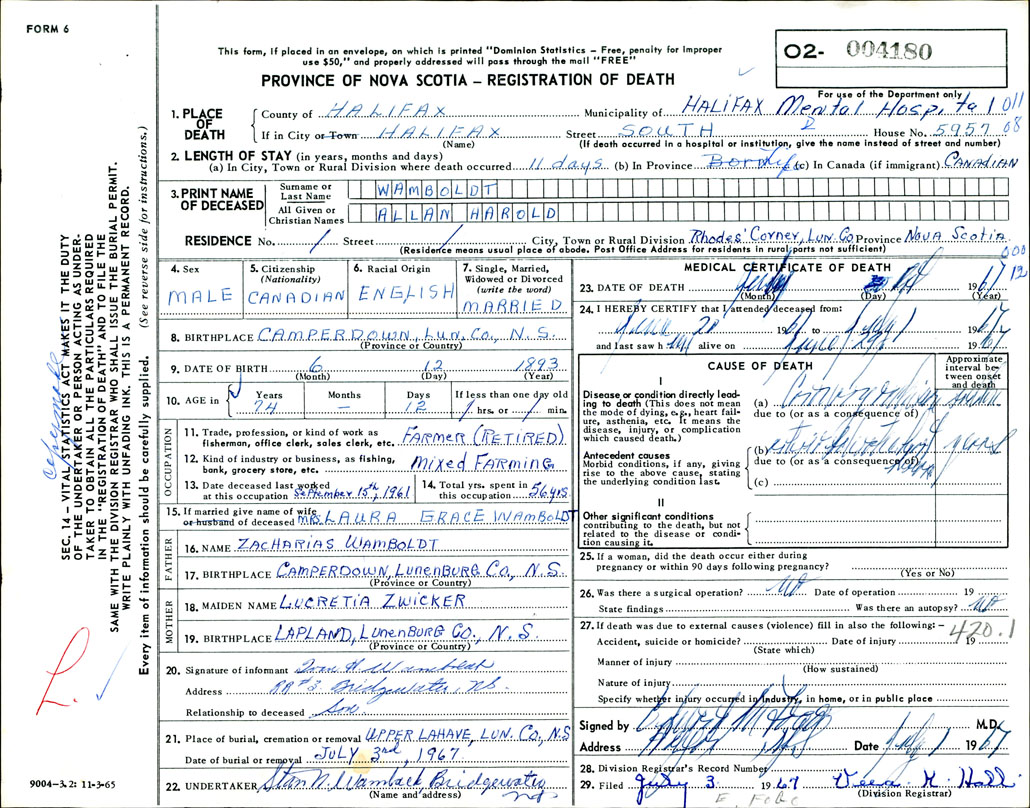 FORM 6
This form, if placed in an envelope, on which is printed "Dominion Statistics – Free, penalty for improper
use $50," and properly addressed will pass through the mail "FREE"
PROVINCE OF NOVA SCOTIA – REGISTRATION OF DEATH
O2- 004180
For use of the Department only
011
08
1. PLACE OF DEATH
County of HALIFAX Municipality of HALIFAX Mental Hospital
If in City or Town HALIFAX Street SOUTH House No. 5957
(Name) (If death occurred in a hospital or institution, give the name instead of street and number)
2. LENGTH OF STAY (in years, months and days)
(a) In City, Town or Rural Division where death occurred 11 days (b) In Province Born Life (c) In Canada (if immigrant) CANADIAN
3. PRINT NAME OF DECEASED
Surname or Last Name WAMBOLDT
All Given or Christian Names ALLAN HAROLD
RESIDENCE No. / Street / City, Town or Rural Division Rhodes' Corner, Lun. Co Province Nova Scotia
(Residence means usual place of abode. Post Office Address for residents in rural parts not sufficient)
000
12
4. Sex
MALE
5. Citizenship
(Nationality)
CANADIAN
6. Racial Origin
ENGLISH
7. Single, Married,
Widowed or Divorced
(write the word)
MARRIED
8. BIRTHPLACE CAMPERDOWN, LUN. CO., N.S.
(Province or Country)
9. DATE OF BIRTH 6 12 1893
(Month) (Day) (Year)
10. AGE in
Years Months Days If less than one day old
74 – 12 / hrs. or / min.
OCCUPATION
11. Trade, profession, or kind of work as
fisherman, office clerk, sales clerk, etc. FARMER (RETIRED)
12. Kind of industry or business, as fishing,
bank, grocery store, etc. Mixed FARMING
13. Date deceased last worked
at this occupation September 15th, 1961
14. Total yrs. spent in
this occupation 56 yrs
15. If married give name of wife
or husband of deceased MRS LAURA GRACE WAMBOLDT
FATHER
16. NAME ZACHARIAS WAMBOLDT
17. BIRTHPLACE CAMPERDOWN, LUNENBURG CO., N.S.
(Province or Country)
MOTHER
18. MAIDEN NAME LUCRETIA ZWICKER
19. BIRTHPLACE LAPLAND, LUNENBURG CO., N.S.
(Province or Country)
20. Signature of informant
Address RR #3 Bridgewater, NS.
Relationship to deceased Son
21. Place of burial, cremation or removal UPPER LAHAVE, LUN. CO., N.S
Date of burial or removal JULY 3rd, 1967
22. UNDERTAKER Bridgewater
(Name and address) NS
MEDICAL CERTIFICATE OF DEATH
23. DATE OF DEATH July 1967
(Month) (Day) (Year)
24. I HEREBY CERTIFY that I attended deceased from:
June 20 1967 to July 1 1967
and last saw h alive on 1967
CAUSE OF DEATH
Approximate
interval be-
tween onset
and death
I
Disease or condition directly lead-
ing to death (This does not mean
the mode of dying, e.g., heart fail-
ure, asthenia, etc. It means the
disease, injury, or complication
which caused death.)
(a)
due to (or as a consequence of)
Antecedent causes
Morbid conditions, if any, giving
rise to the above cause, stating
the underlying condition last.
(b)
due to (or as a consequence of)
(c)
II
Other significant conditions
contributing to the death, but not
related to the disease or condi-
tion causing it.
25. If a woman, did the death occur either during
pregnancy or within 90 days following pregnancy?
(Yes or No)
26. Was there a surgical operation? No Date of operation 19
State findings Was there an autopsy? No
27. If death was due to external causes (violence) fill in also the following: –
420.1
Accident, suicide or homicide? Date of injury 19
(State which)
Manner of injury
(How sustained)
Nature of injury
Specify whether injury occurred in industry, in home, or in public place
Signed by M.D.
Address Date July 1 1967
28. Division Registrar's Record Number
29. Filed July 3 1967
(Division Registrar)
SEC. 14 – VITAL STATISTICS ACT MAKES IT THE DUTY
OF THE UNDERTAKER OR PERSON ACTING AS UNDER-
TAKER TO OBTAIN ALL THE PARTICULARS REQUIRED
IN THE "REGISTRATION OF DEATH" AND TO FILE THE
SAME WITH THE DIVISION REGISTRAR WHO SHALL ISSUE THE BURIAL PERMIT.
WRITE PLAINLY WITH UNFADING INK. THIS IS A PERMANENT RECORD.
Every item of information should be carefully supplied. (See reverse side for instructions.)
L.
9004–3.2: 11-3-65